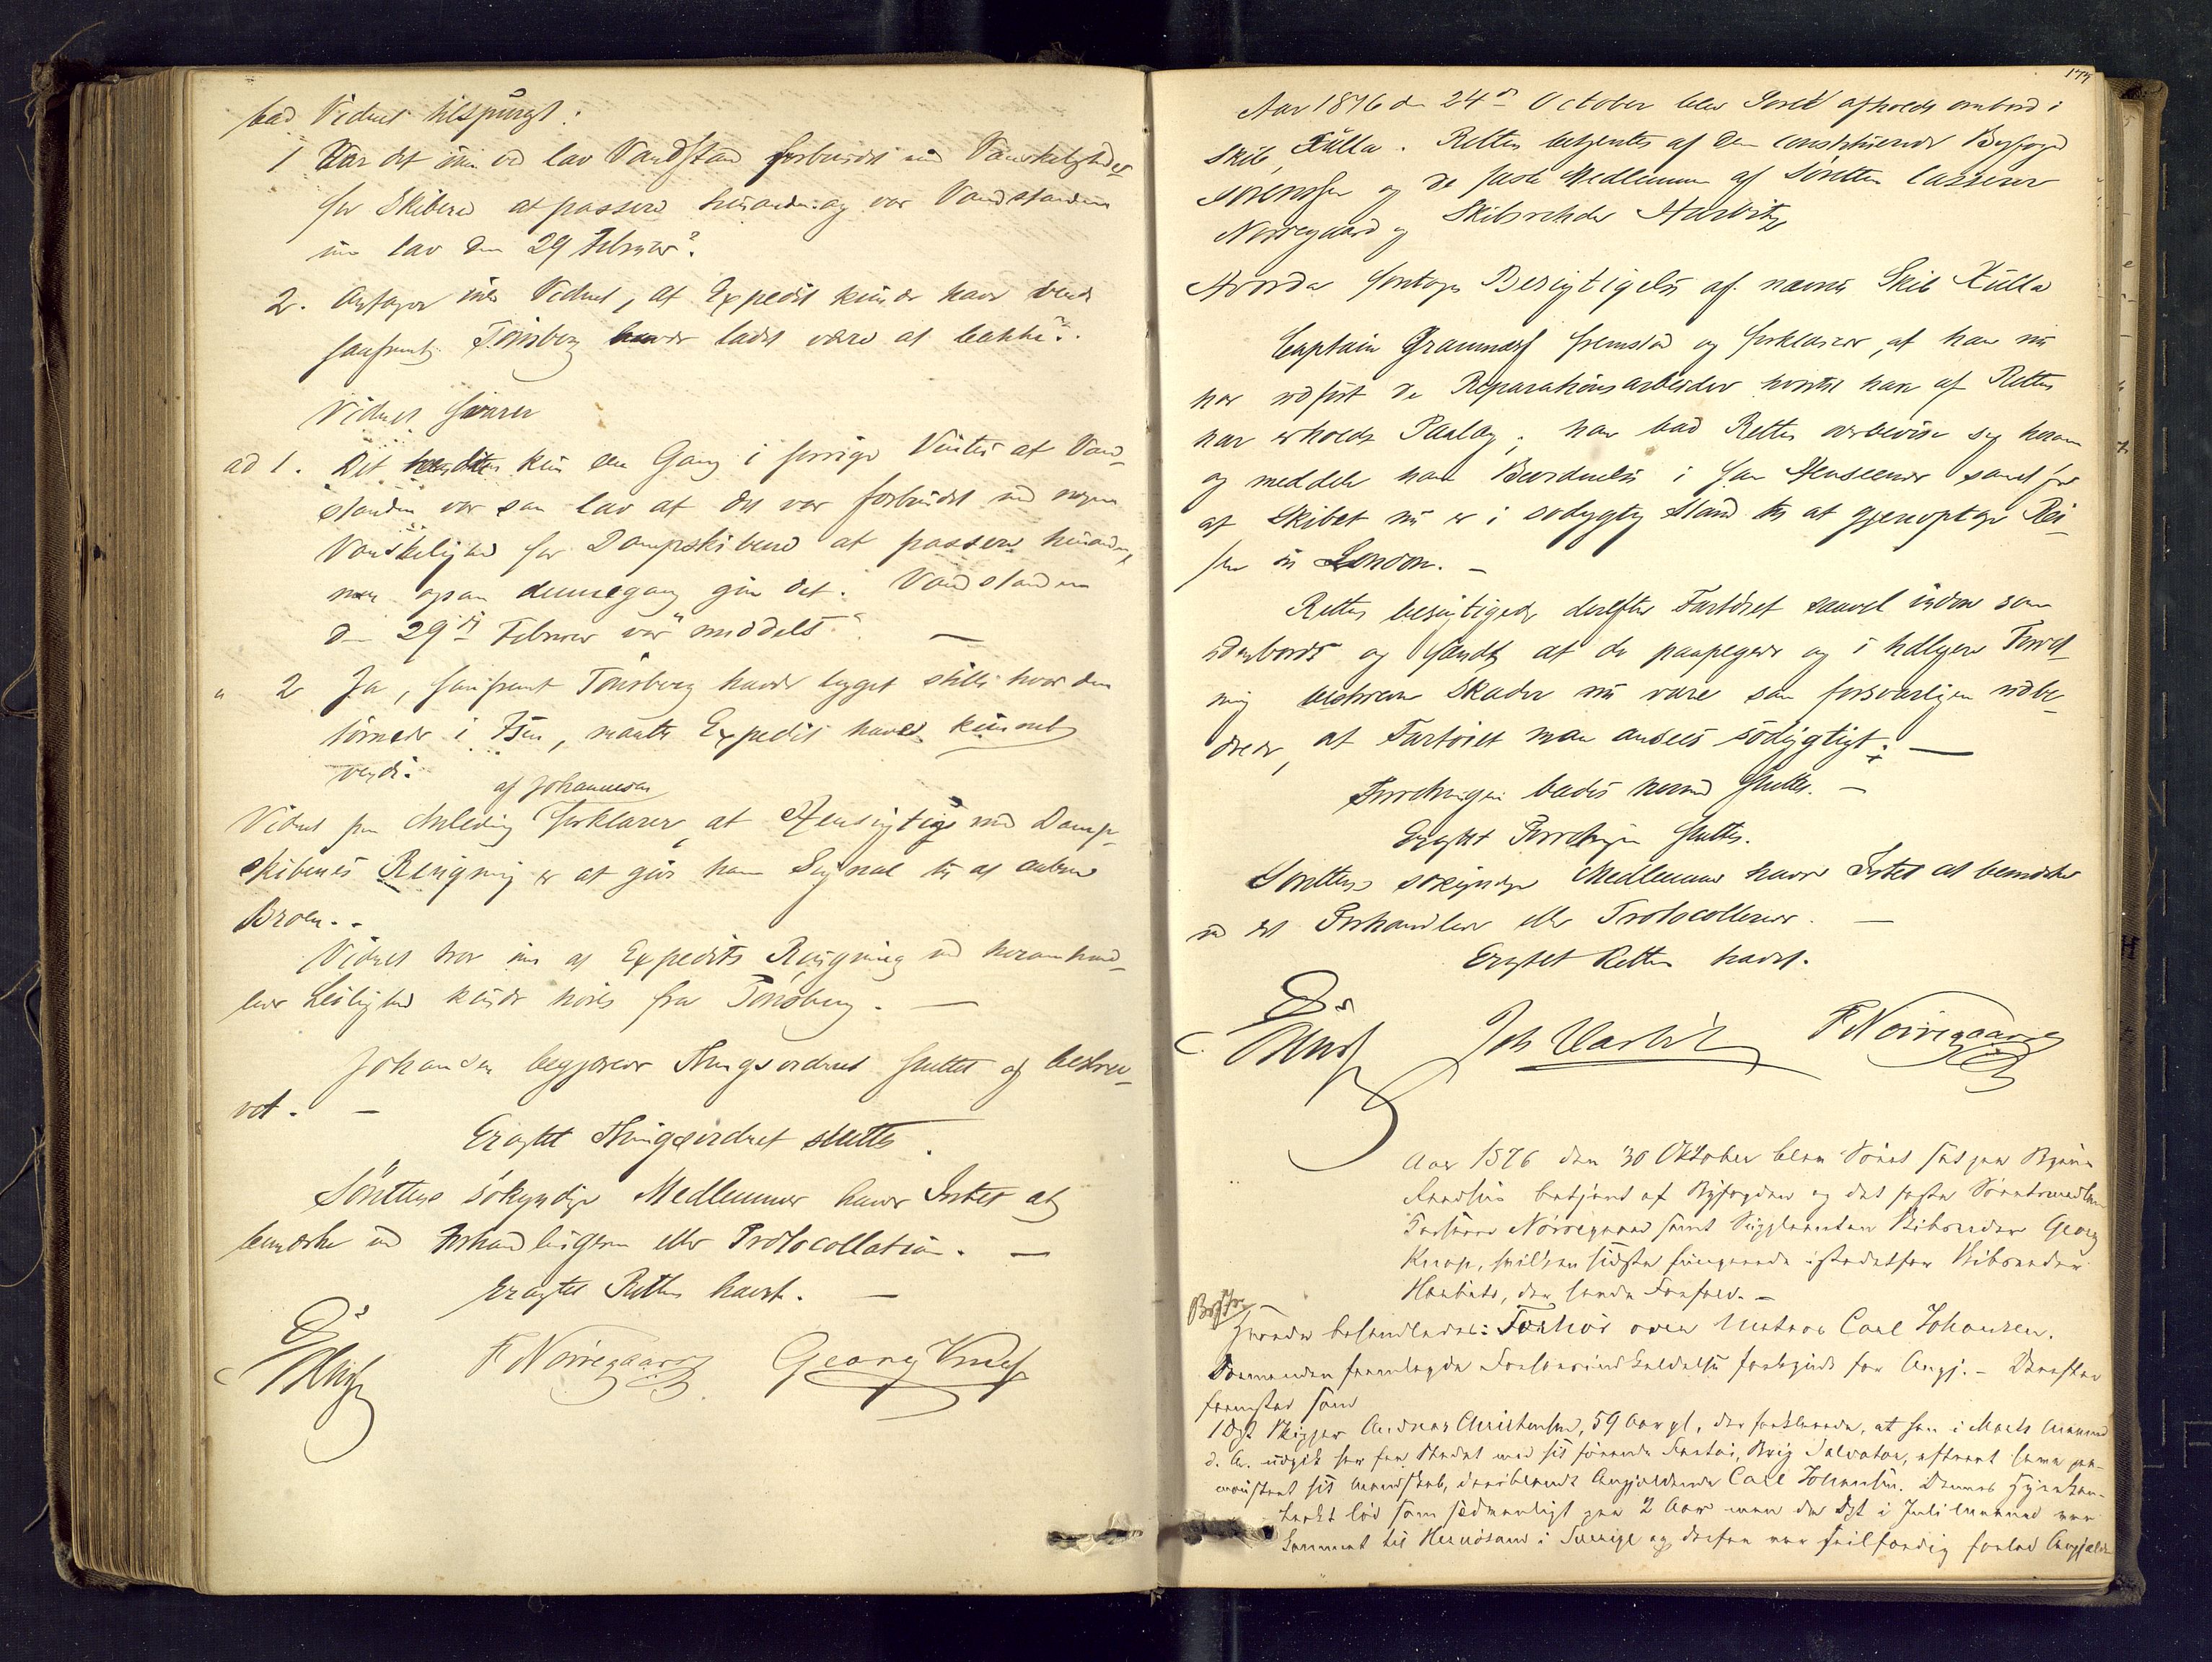 bad Vidnet tilspurgt:
1 Var det ikke ved lav Vandstand forbundet med Vanskeligheder
for Skibene at passere hinanden og var Vandstanden
ikke lav den 29 Februar?
2. Antager ikke Vidnet, at Expedit kunde have vendt
saafremt Tönsberg havde ladet være at bakke?
Vidnet svarer
ad 1. Det hændte kun en Gang i forrige Vinter at Vand-
standen var saa lav at det var forbundet med nogen
Vanskelighed for Dampskibene at passere hinanden,
men ogsaa dennegang gik det. Vandstanden
d 29de Februar var "middels".
" 2 Ja, saafremt Tönsberg havde ligget stille hvor den
törnede i Isen, maatte Expedit have kunnet
vende.
af Johannesen
Vidnet paa Anledning forklarer, at Hensigten med Damp-
skibenes Ringning er at give ham Signal til at aabne
Broen. -
Vidnet tror ikke at Expedits Ringning ved heromhand-
lede Leilighed kunde höres fra Tönsberg. -
Johansen begjærede Thingsvidnet sluttet og beskre-
vet. -
Eragtet Thingsvidnet sluttes.
Sörettens sökyndige Medlemmer havde Intet at
bemærke ved Forhandlingerne eller Protocollationen. -
Eragtet Retten hævet. -
F Nörregaard Georg Knap
Aar 1876 den 24de October blev Söret afholdt ombord i
Skib Xulla. Retten betjentes af den constituerende Byfoged
Sörensen og de faste Medlemmer af Söretten Casserer
Nörregaard og Skibsrheder Harbitz
Hvorda foretoges Besigtigelse af nævnte Skib Xulla
Captain fremstod og forklarer, at han nu
har udfört de Reparationsarbeider hvortil han af Retten
har erholdt Paalæg; han bad Retten overbevise sig herom
og meddele ham Bevidnelse i saa Henseende samt for
at Skibet nu er i södygtig Stand til at gjenoptage Rei-
sen til London. -
Retten besigtigede derefter Fartöiet saavel inden som
udenbords og fandt at de paapegede og i tidligere Forret-
ning beskrevne Skader nu vare saa forsvarligen udbe-
drede, at Fartöiet maa ansees södygtigt. -
Forretningen bades hermed sluttet. -
Eragtet Forretningen sluttes.
Sörettens sökyndige Medlemmer havde Intet at bemærke
ved det Forhandlede eller Protocollerede. -
Eragtet Retten hævet.
Joh Harbitz F Nörregaard
Aar 1876 den 30 Oktober blev Söret sat paa Byens
Raadhus betjent af Byfogden og det faste Söretsmedlem
Kasserer Nörregaard samt Suppleanten Skibsreder Georg
Knap, hvilken sidste fungerede istedetfor Skibsreder
Harbitz, der havde Forfald. -
Hvorda behandledes: Forhör over Matros Carl Johansen.
Dommeren fremlagde Forhörsindkaldelse forkyndt for Angj. - Derefter
fremstod som
1 Dpt Skipper Andreas Christensen, 59 Aar gl, der forklarede, at han i Marts Maaned
d. A. udgik her fra Stedet med sit förende Fartöi, Brig Salvator, efterat have paa-
mönstret sit Mandskab, deriblandt Angjældende Carl Johansen. Dennes Hyrekon-
trakt löd som sædvanligt paa 2 Aar men da Dpt i Juli Maaned var
kommet til Hernösand i Sverige og derfra var seilfærdig forlod Angjælde